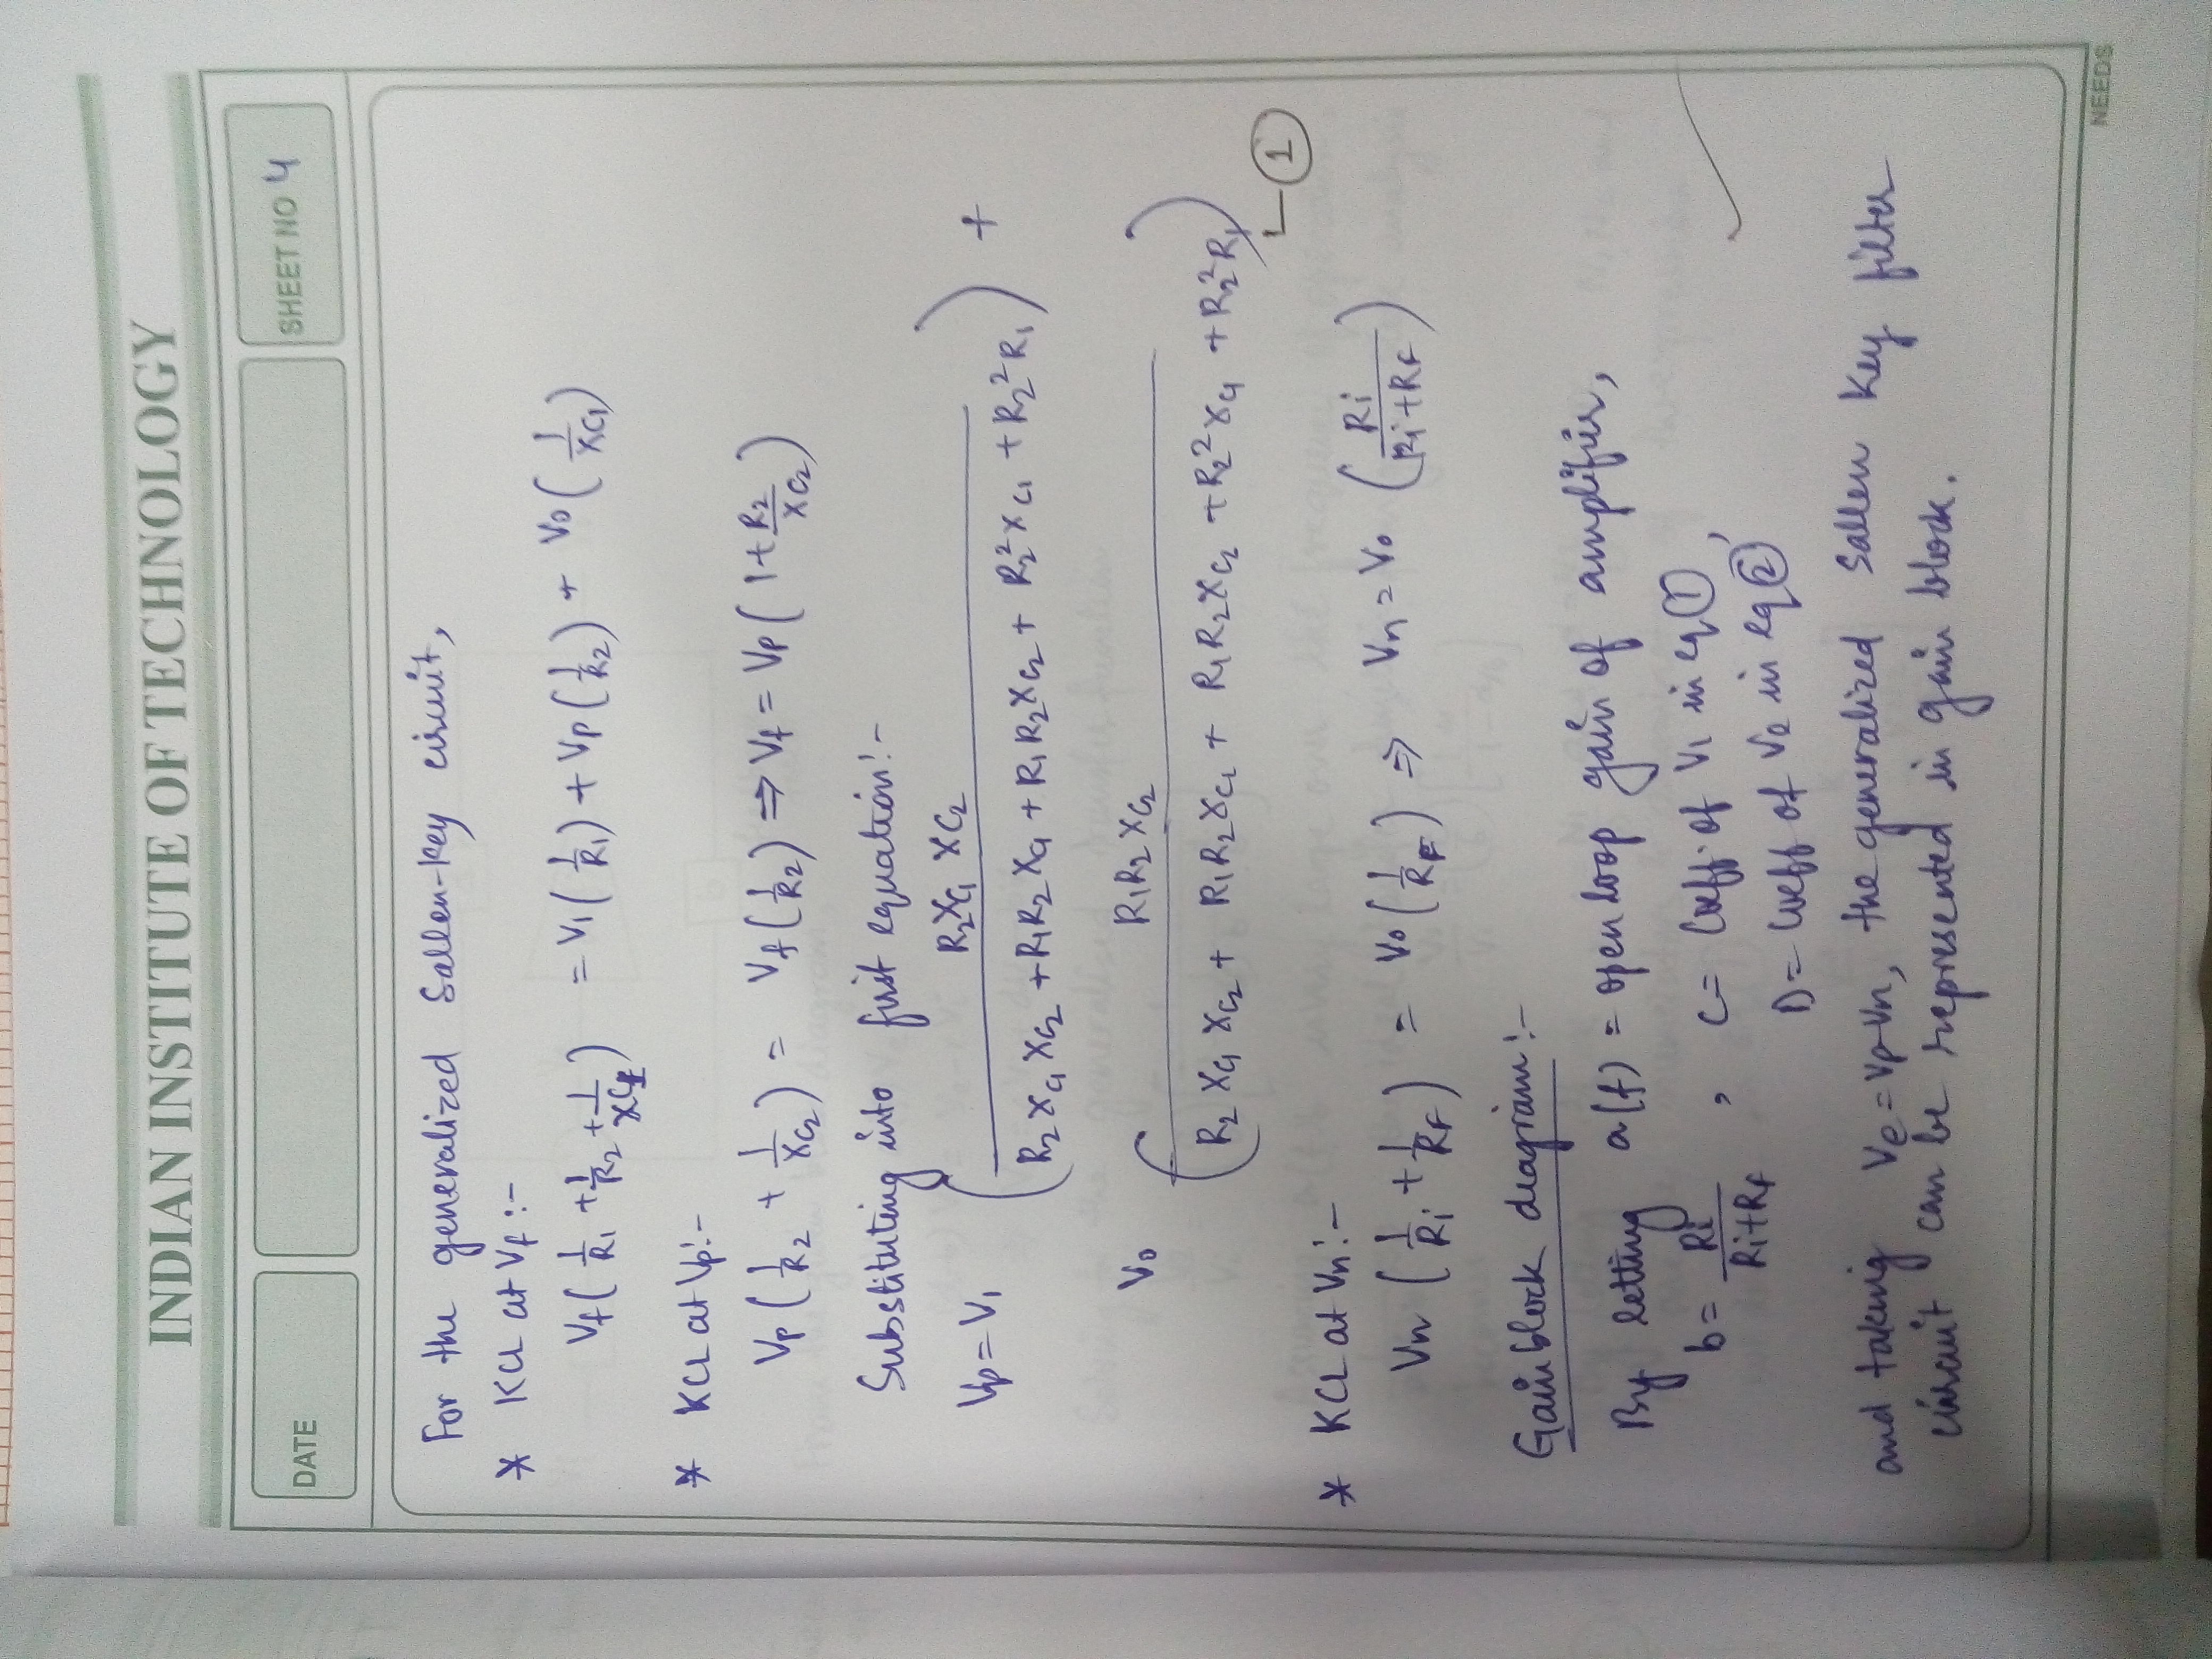 INDIAN INSTITUTE OF TECHNOLOGY
DATE
SHEET NO 4
For the generalized Sallen-Key circuit,
* KCL at Vf :-
Vf ( 1/R₁ + 1/R₂ + 1/XC₁ ) = V₁ ( 1/R₁ ) + Vp ( 1/R₂ ) + V₀ ( 1/XC₁ )
* KCL at Vp :-
Vp ( 1/R₂ + 1/XC₂ ) = Vf ( 1/R₂ ) ⇒ Vf = Vp ( 1 + R₂/XC₂ )
Substituting into first equation :-
Vp = V₁ ( R₂XC₁XC₂ / R₂XC₁XC₂ + R₁R₂XC₁ + R₁R₂XC₂ + R₂²XC₁ + R₂²R₁ ) +
V₀ ( R₁R₂XC₂ / R₂XC₁XC₂ + R₁R₂XC₁ + R₁R₂XC₂ + R₂²XC₁ + R₂²R₁ )
①
* KCL at Vn :-
Vn ( 1/Ri + 1/RF ) = V₀ ( 1/RF ) ⇒ Vn = V₀ ( Ri / Ri+RF )
Gain block diagram :-
By letting a(f) = open loop gain of amplifier,
b = Ri / Ri+RF , c = Coeff. of V₁ in eq ①,
D = Coeff of Ve in eq ②
and taking Ve = Vp-Vn, the generalized Sallen Key filter
circuit can be represented in gain block.
NEEDS